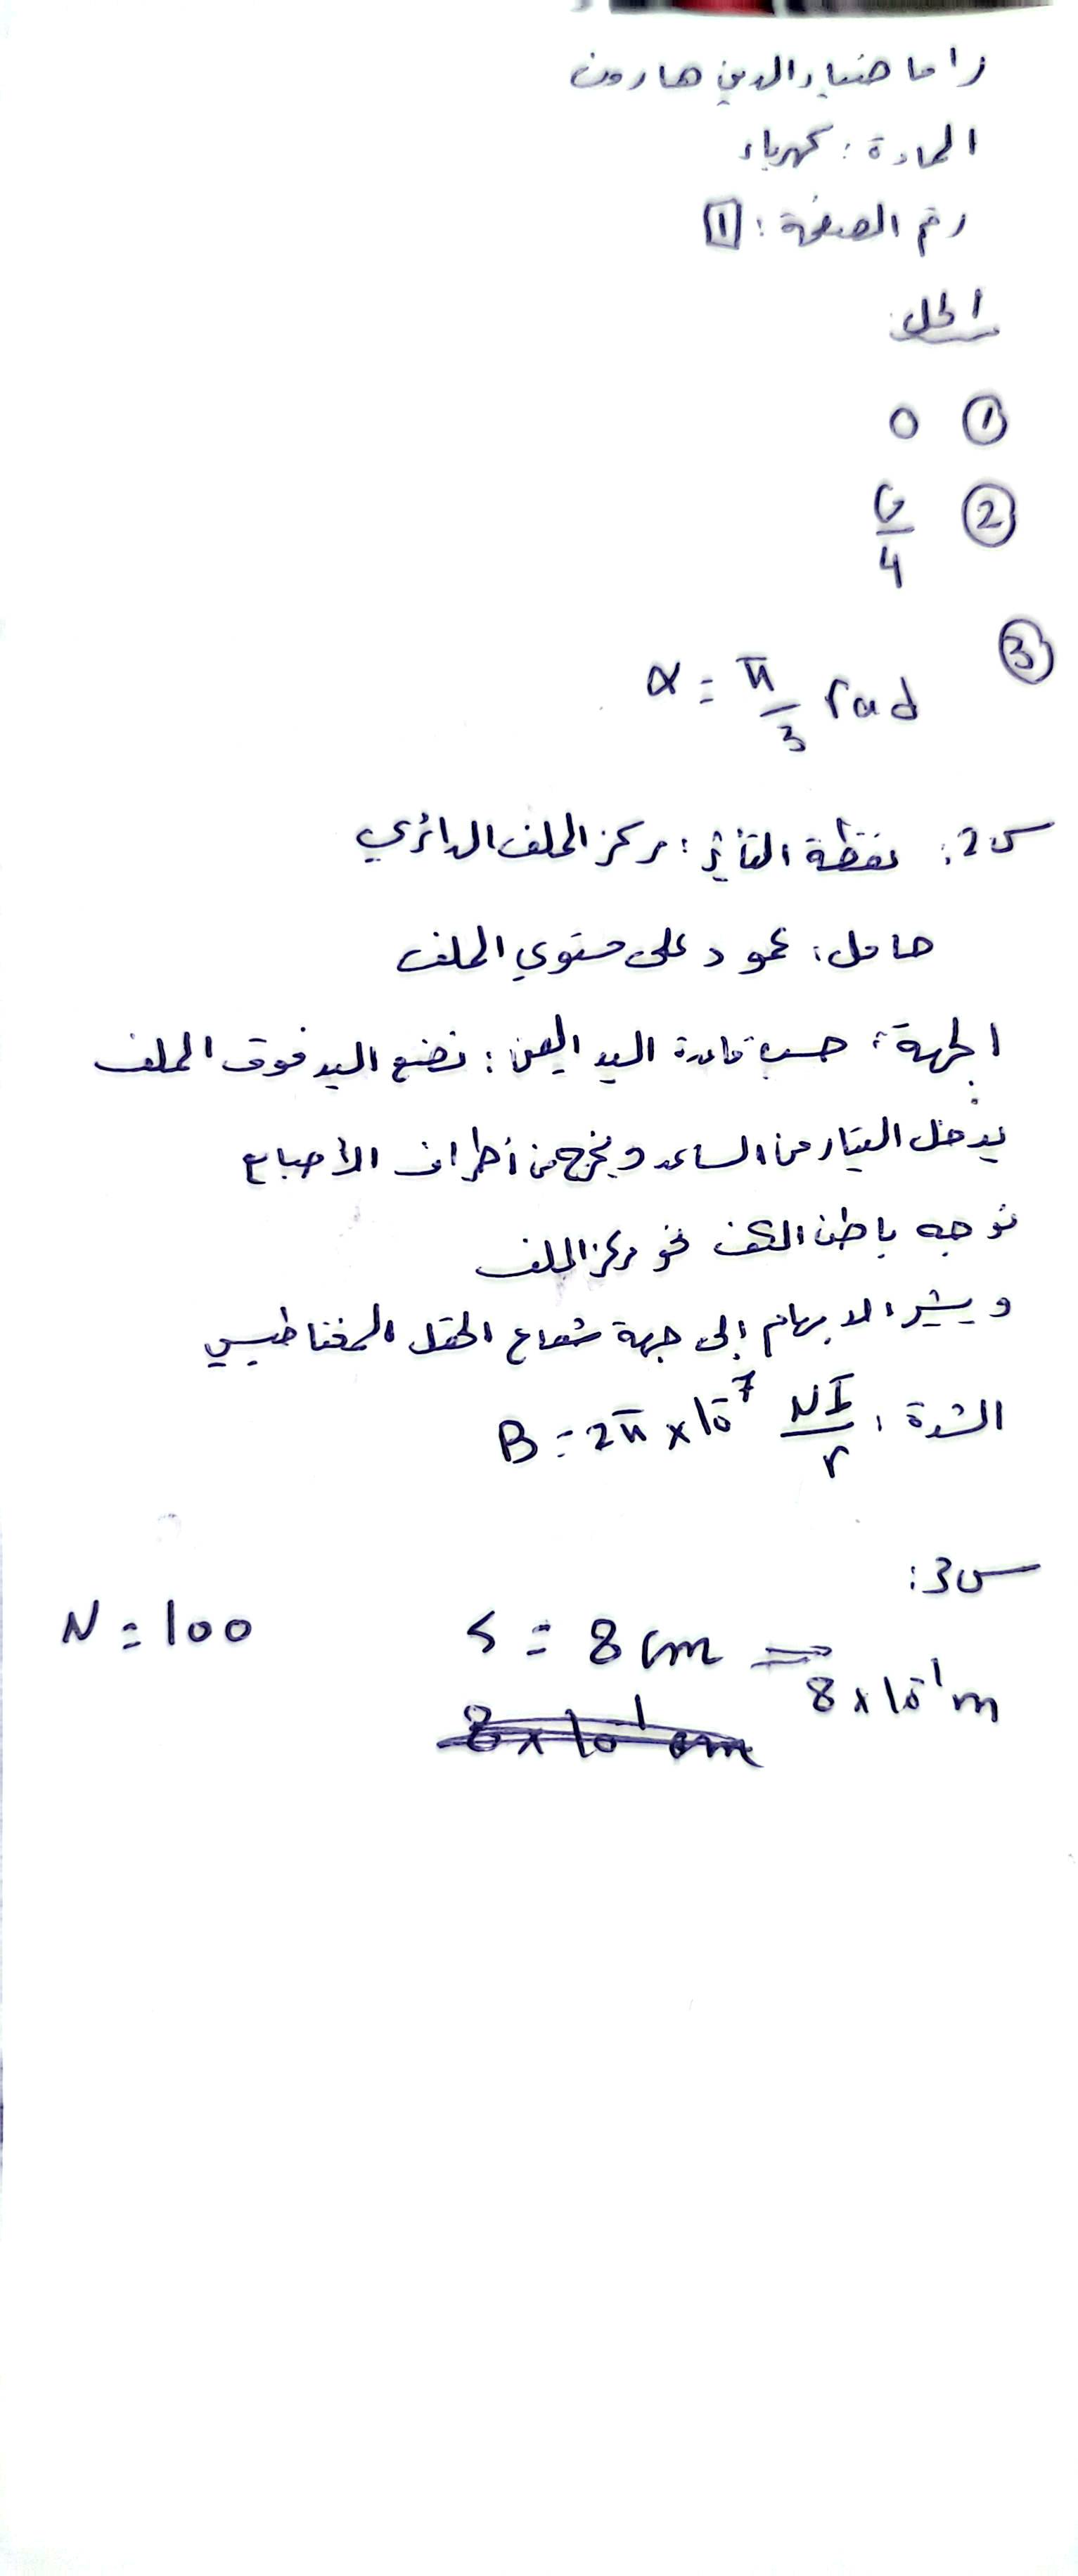 راما ضياء الدين هارون
المادة : كهرباء
رقم الصفحة : 1
الحل
① 0
② G/4
③ α = π/3 rad
س2: نقطة التأثير : مركز الملف الدائري
حامل : عمود على مستوي الملف
الجهة : حسب قاعدة اليد اليمنى : نضع اليد فوق الملف
يدخل التيار من الساعد ويخرج من أطراف الأصابع
نوجه باطن الكف نحو مركز الملف
ويشير الابهام إلى جهة شعاع الحقل المغناطيسي
الشدة : B = 2π × 10⁻⁷ NI/r
س3:
N = 100 s = 8 cm ⇒ 8 × 10⁻¹ m